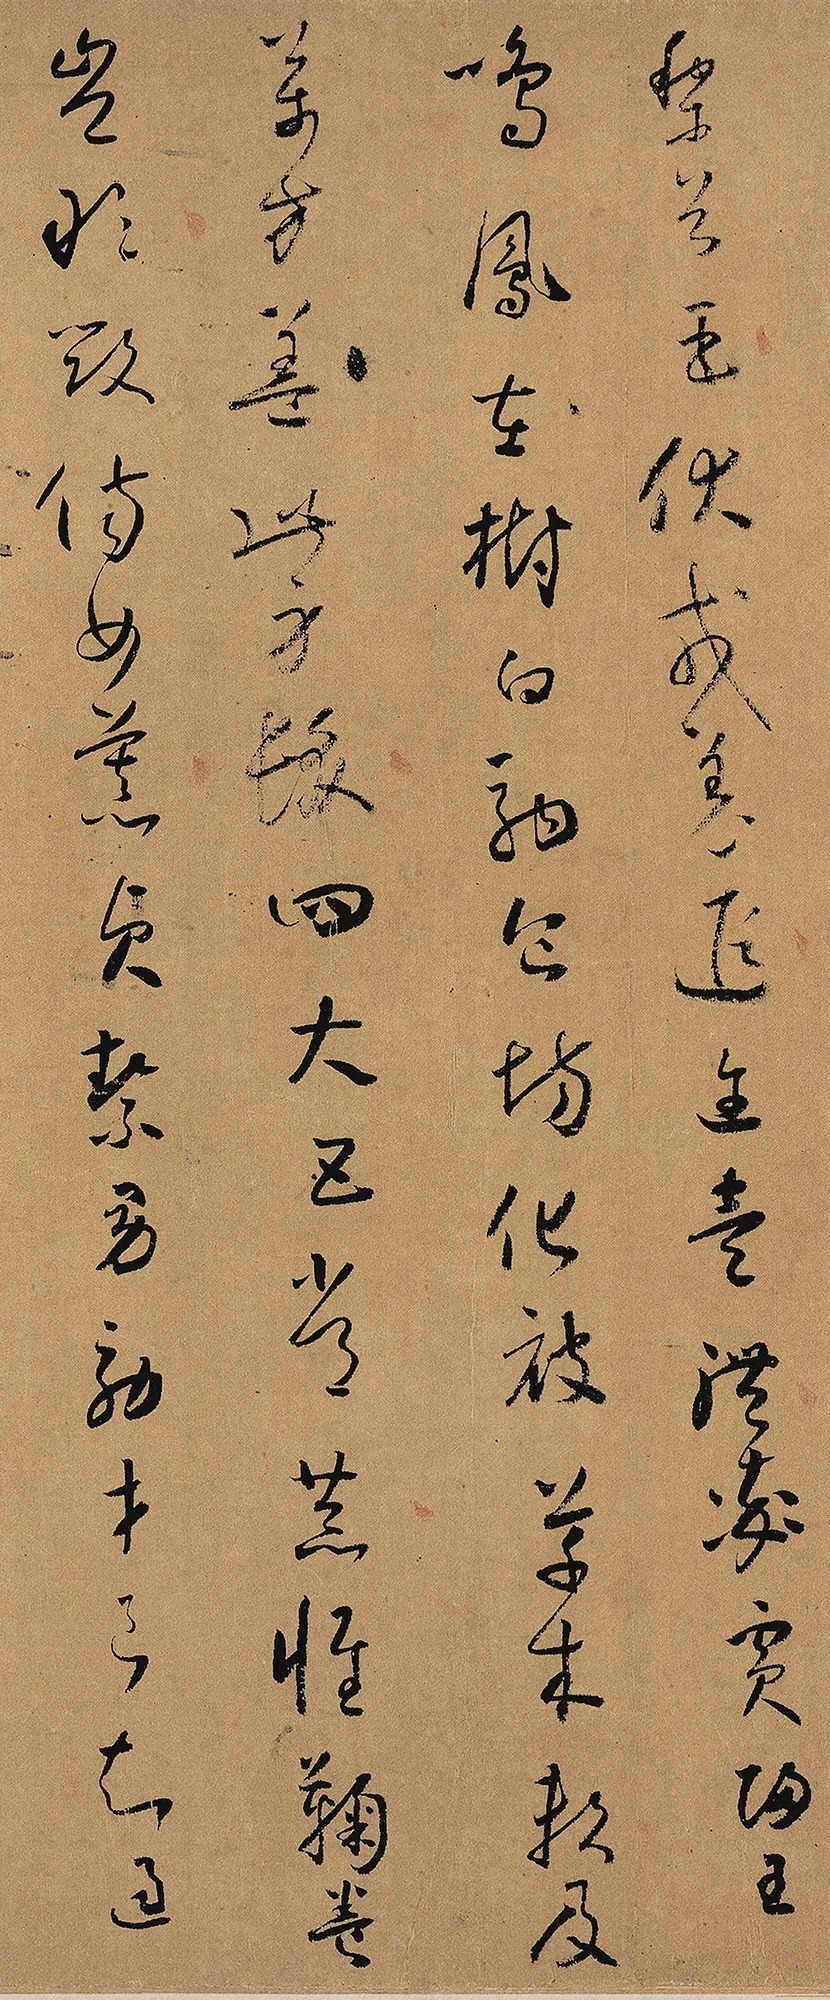 黎首臣伏戎羌遐邇壹體率賓歸王
鳴鳳在樹白駒食場化被草木賴及
萬方蓋此身髮四大五常恭惟鞠養
豈敢毀傷女慕貞絜男效才良知過